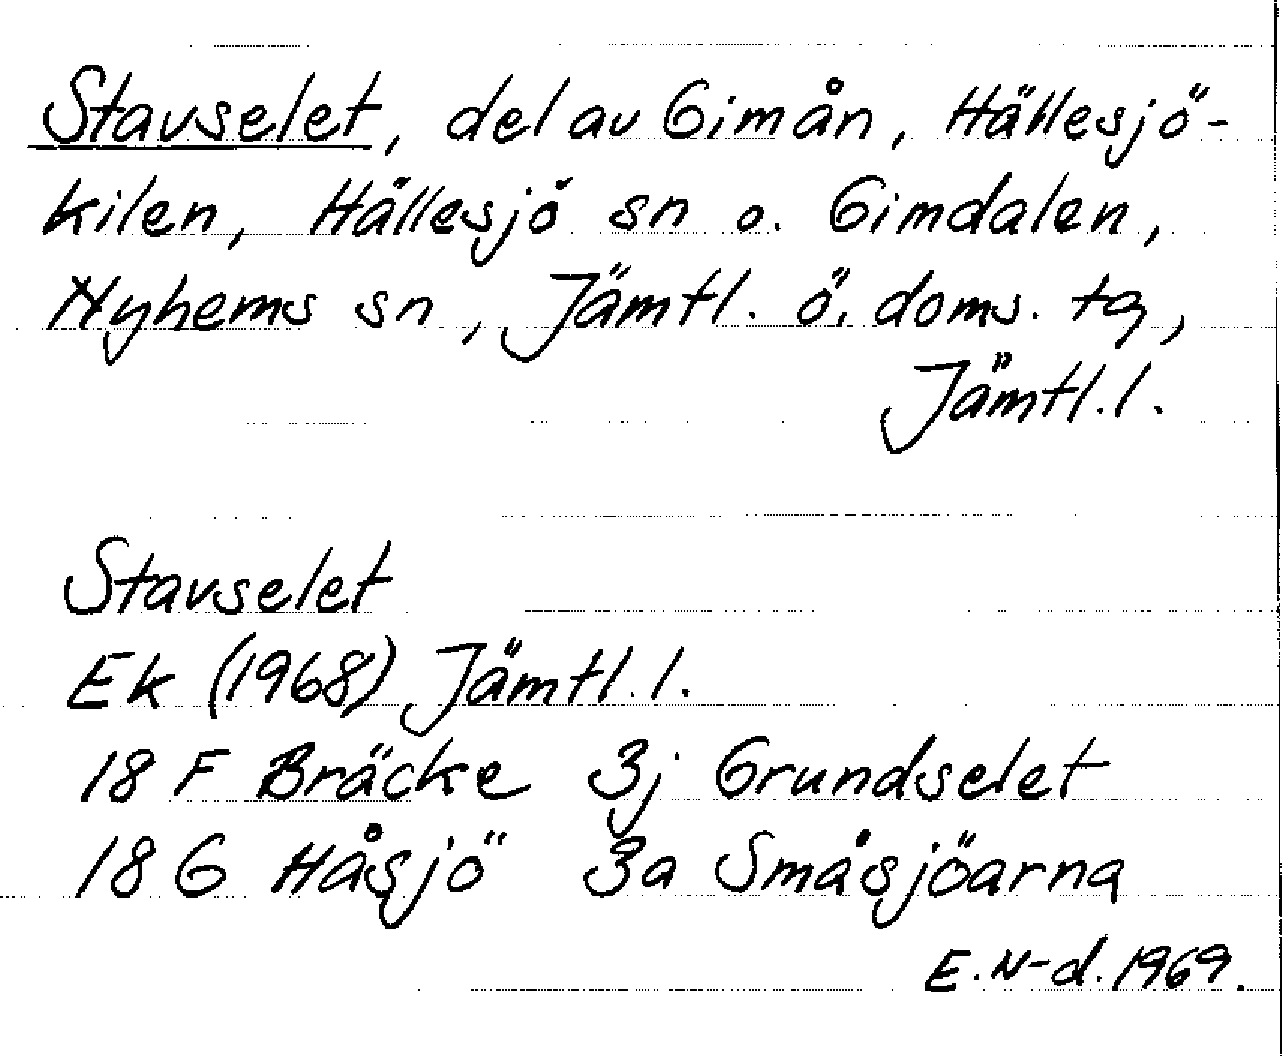 Stavselet, del av Gimån, Hällesjö-
kilen, Hällesjö sn o. Gimdalen,
Nyhems sn, Jämtl. ö. doms. tg,
Jämtl. l.
Stavselet
Ek (1968) Jämtl. l.
18 F Bräcke 3j Grundselet
18 G Håsjö 3a Småsjöarna
E. N-d. 1969.